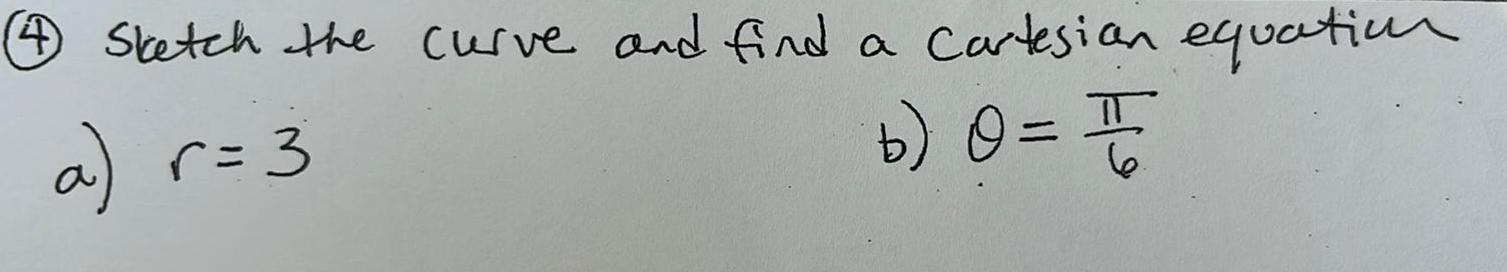 ④ Sketch the curve and find a Cartesian equation
a) r = 3 b) θ = π/6